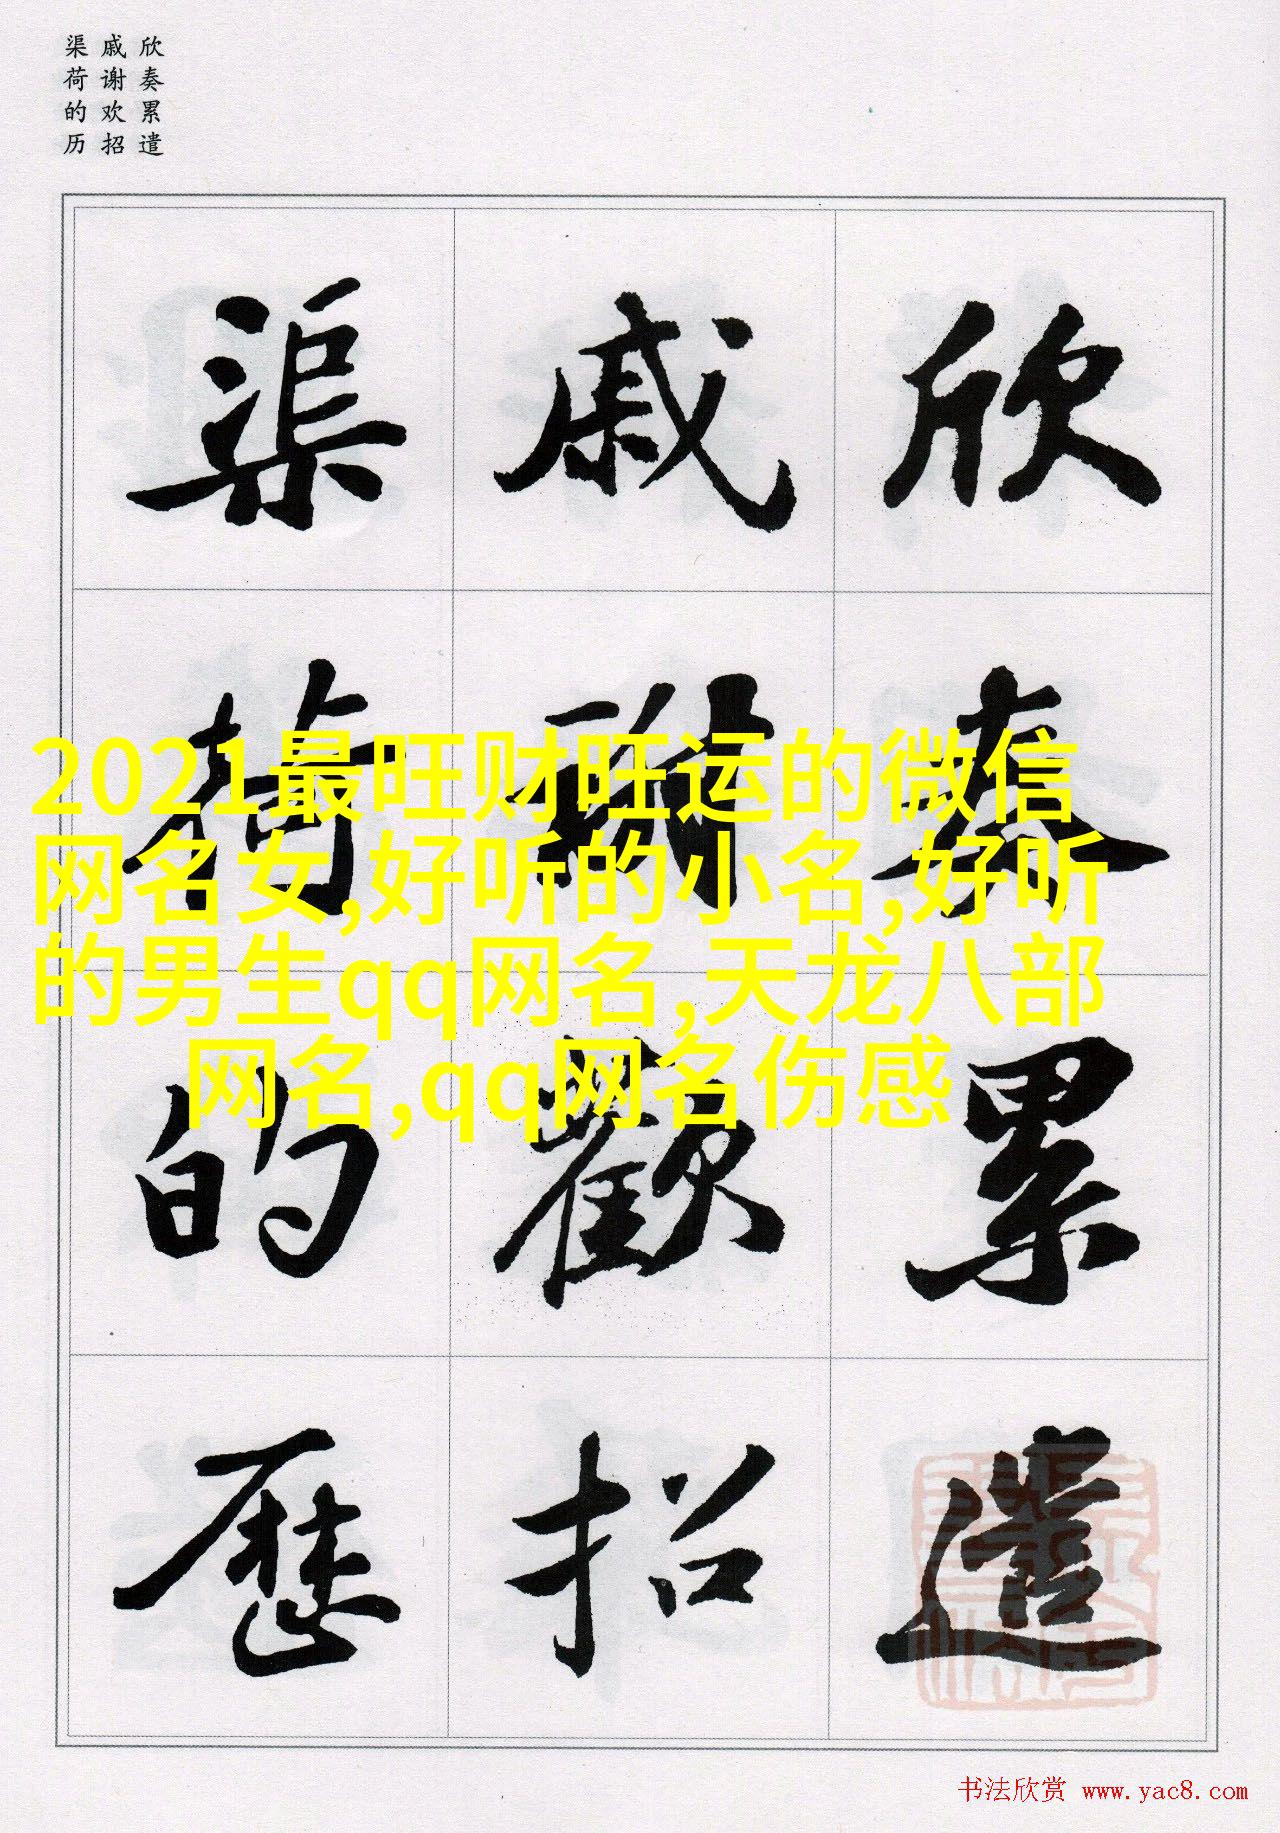 欣奏累遣
戚谢欢招
渠荷的历
欣奏累遣
戚謝歡招
渠荷的歷
2021最旺财旺运的微信
网名女,好听的小名,好听
的男生qq网名,天龙八部
网名,qq网名伤感
书法欣赏 www.yac8.com